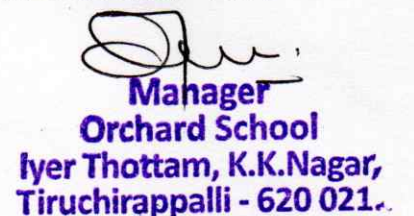 Manager
Orchard School
Iyer Thottam, K.K.Nagar,
Tiruchirappalli - 620 021.